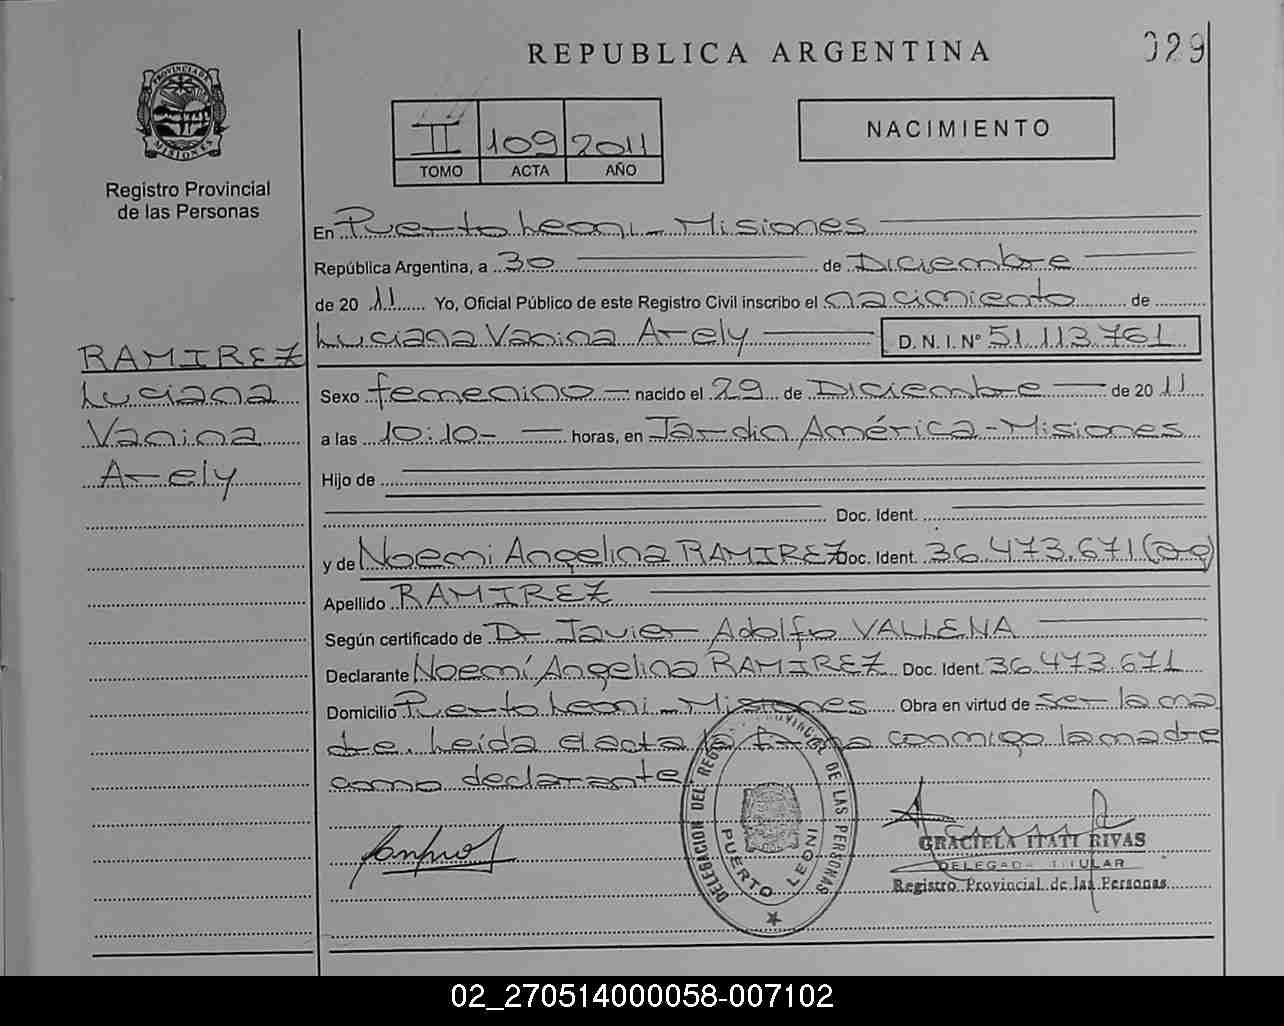 REPUBLICA ARGENTINA
029
PROVINCIA DE MISIONES
Registro Provincial
de las Personas
II 109 2011
TOMO ACTA AÑO
NACIMIENTO
En Puerto Leoni - Misiones
República Argentina, a 30 de Diciembre
de 2011 Yo, Oficial Público de este Registro Civil inscribo el nacimiento de
Luciana Vanina Arely D. N. I. Nº 51.113.761
RAMIREZ
Luciana
Vanina
Arely
Sexo femenino nacido el 29 de Diciembre de 2011
a las 10:10- horas, en Jardín América - Misiones
Hijo de
Doc. Ident.
y de Noemi Angelina RAMIREZ Doc. Ident. 36.473.671 (ag)
Apellido RAMIREZ
Según certificado de Dr Javier Adolfo VALLENA
Declarante Noemí Angelina RAMIREZ Doc. Ident. 36.473.671
Domicilio Puerto Leoni - Misiones Obra en virtud de ser la ma
dre. Leída el acta la firma conmigo la madre
como declarante
DELEGACION DEL REGISTRO PROVINCIAL DE LAS PERSONAS
PUERTO LEONI
GRACIELA ITATI RIVAS
DELEGADA TITULAR
Registro Provincial de las Personas
02_270514000058-007102